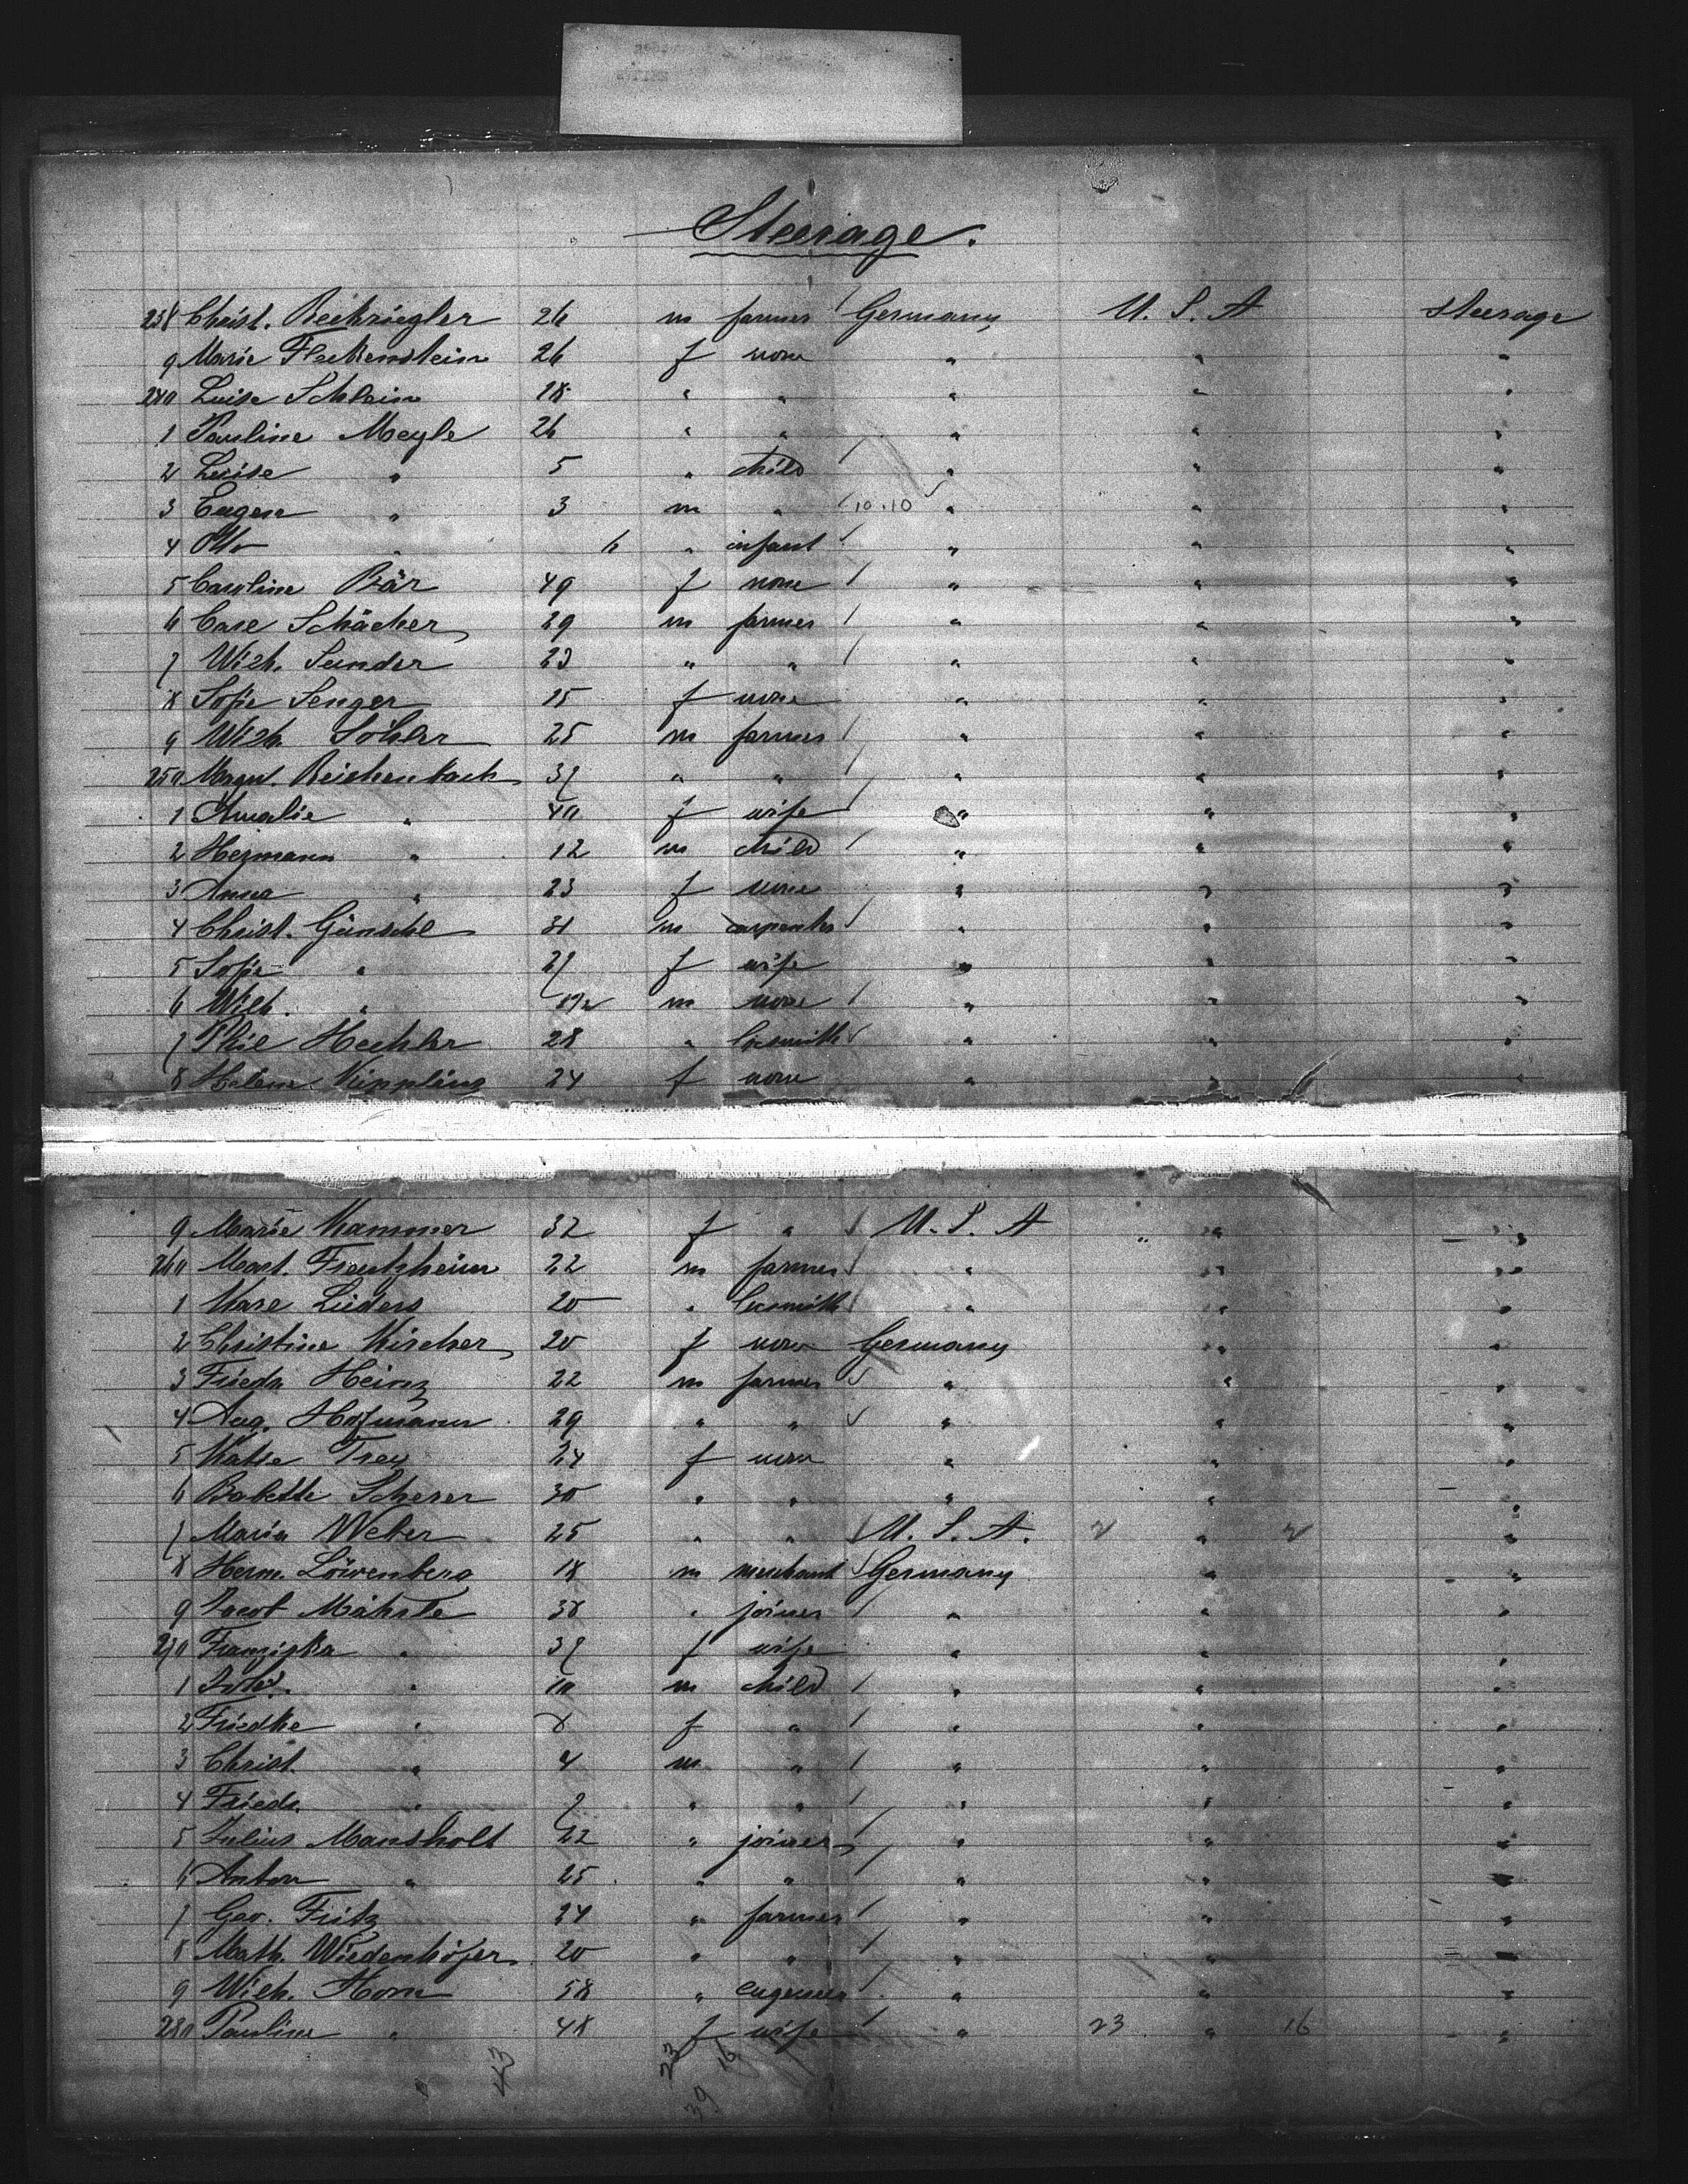 Steerage.
238 Christ. 26 m farmer Germany U. S. A steerage
9 Marie Fleckenstein 26 f none " " "
240 Luise Schlein 18 " " " " "
1 Pauline Meyle 26 " " " " "
2 Luise " 5 " child " " "
3 Eugen " 3 m " 10.10 " " "
4 Otto " 6 " infant " " "
5 Caroline Bär 49 f none " " "
6 Carl Schächer 29 m farmer " " "
7 Wilh. Sunder 23 " " " " "
8 Sofie Senger 15 f none " " "
9 Wilh. Söhler 25 m farmer " " "
250 Reichenbach 37 " " " " "
1 Amalie " 40 f wife " " "
2 Hermann " 12 m child " " "
3 Anna " 23 f none " " "
4 Christ. 31 m carpenter " " "
5 Sofie " 27 f wife " " "
6 Wilh. " m none " " "
7 Phil Hechler 28 " locsmith " " "
8 Helene Kippling 24 f none " " "
9 Marie Kammer 32 f " U. S. A " "
260 Mart. Frentzheim 22 m farmer " " "
1 Karl Lüders 20 " locsmith " " "
2 Christine Kircher 20 f none Germany " "
3 Friedr. Heinz 22 m farmer " " "
4 Aug. Hofmann 29 " " " " "
5 Kathe Frey 24 f none " " "
6 Babette Scherer 30 " " " " "
7 Maria Weber 25 " " U. S. A. " "
8 Herm. Löwenberg 18 m merchant Germany " "
9 Jacob Mährle 38 " joiner " " "
270 Franziska " 37 f wife " " "
1 " 10 m child " " "
2 Friedke " 8 f " " " "
3 Christ. " 4 m " " " "
4 Friedr. " 7 " " " " "
5 Julius Mansholt 22 " joiner " " "
6 Anton " 25 " " " " "
7 Geo. Fritz 24 " farmer " " "
8 Math. Wiedenhöfer 20 " " " " "
9 Wilh. Horn 58 " engineer " " "
280 Pauline " 48 f wife " 23 " 16 "
43 23 16
39